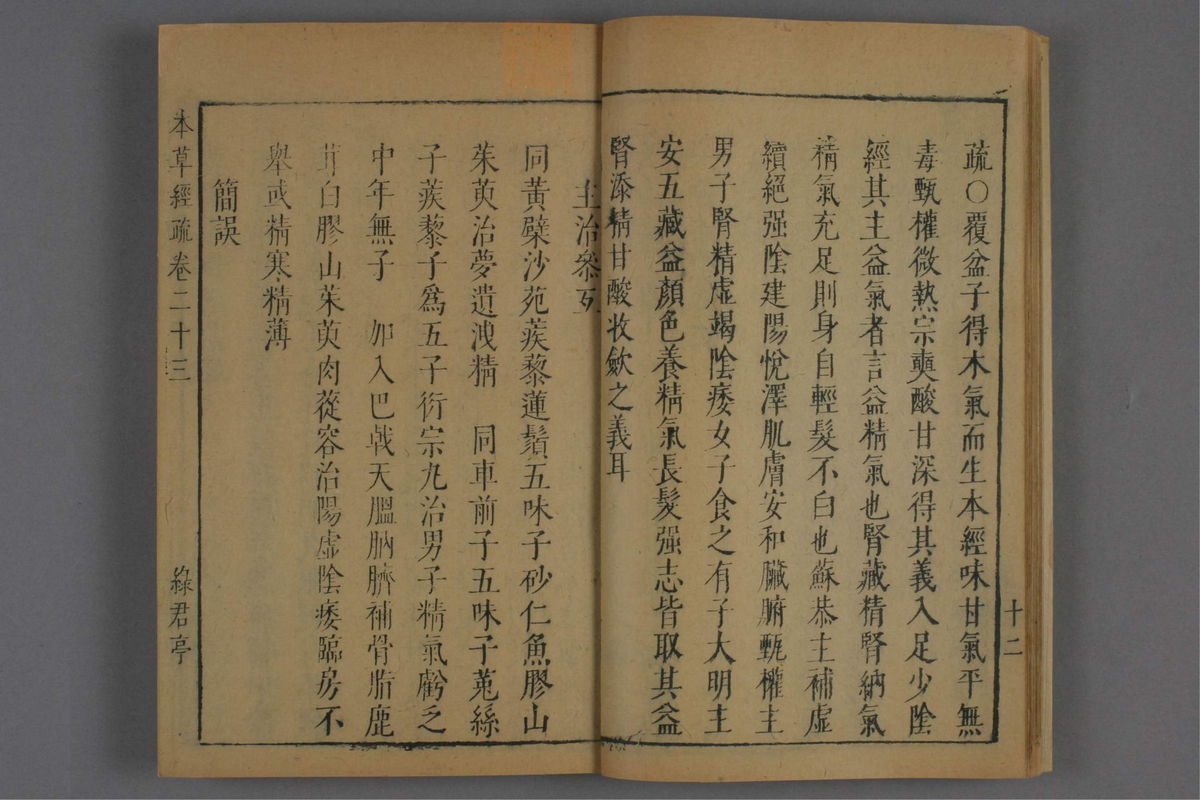 疏○覆盆子得木氣而生本經味甘氣平無
毒甄權微熱宗奭酸甘深得其義入足少陰
經其主益氣者言益精氣也腎藏精腎納氣
精氣充足則身自輕髮不白也蘇恭主補虛
續絕强陰建陽悅澤肌膚安和臟腑甄權主
男子腎精虛竭陰痿女子食之有子大明主
安五藏益顏色養精氣長髮强志皆取其益
腎添精甘酸收斂之義耳
十二
主治叅互
同黃檗沙苑蒺藜蓮鬚五味子砂仁魚膠山
茱萸治夢遺洩精 同車前子五味子菟絲
子蒺藜子爲五子衍宗丸治男子精氣虧乏
中年無子 加入巴戟天膃肭臍補骨脂鹿
茸白膠山茱萸肉蓯容治陽虛陰痿臨房不
舉或精寒精薄
簡誤
本草經疏卷二十三
綠君亭